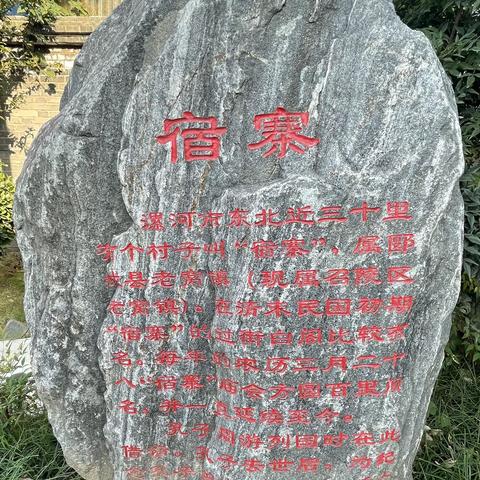 宿寨
漯河市东北近三十里
有个村子叫“宿寨”，属郾
城县老窝镇（现属召陵区
老窝镇）。在清末民国初期
“宿寨”的过街白阁比较有
名。每年的农历三月二十
八“宿寨”庙会方圆百里颇
名，并一直延续至今。
孔子周游列国时在此
借宿。孔子去世后，为纪